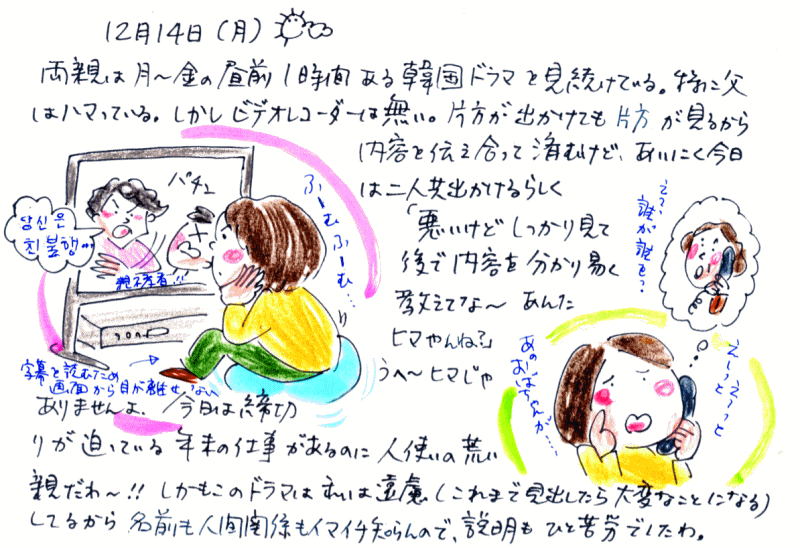 12月14日(月)
両親は月〜金の昼前1時間ある韓国ドラマを見続けている。特に父
はハマっている。しかしビデオレコーダーは無い。片方が出かけても片方が見るから
内容を伝え合って済むけど、あいにく今日
は二人共出かけるらしく
「悪いけどしっかり見て
後で内容を分かり易く
教えてな〜 あんた
ヒマやんね?」
うへ〜ヒマじゃ
ありませんよ、今日は締切
りが迫っている年末の仕事があるのに人使いの荒い
親だわ〜!!しかもこのドラマは私は遠慮(これまで見出したら大変なことになる)
してるから名前も人間関係もイマイチ知らんので、説明もひと苦労でしたわ。
バチュ
당신은
친불행…
親不孝者!!
ふーむふーむ…
字幕を読むため
画面から目が離せない
え?、
誰が誰を?
え〜っとえ〜っと
あのおばちゃんが…